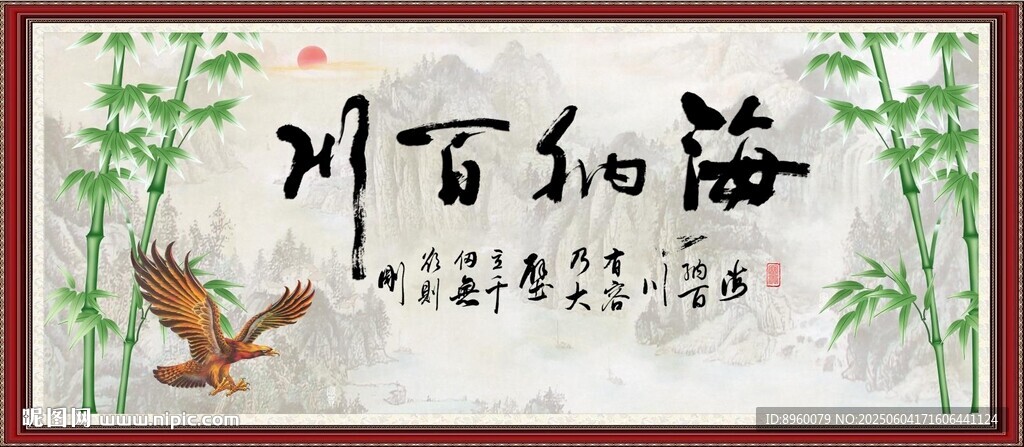 海纳百川
海
纳百
川
有容
乃大
壁
立千
仞無
欲則
剛
昵图网 www.nipic.com
ID:8960079 NO:20250604171606441124